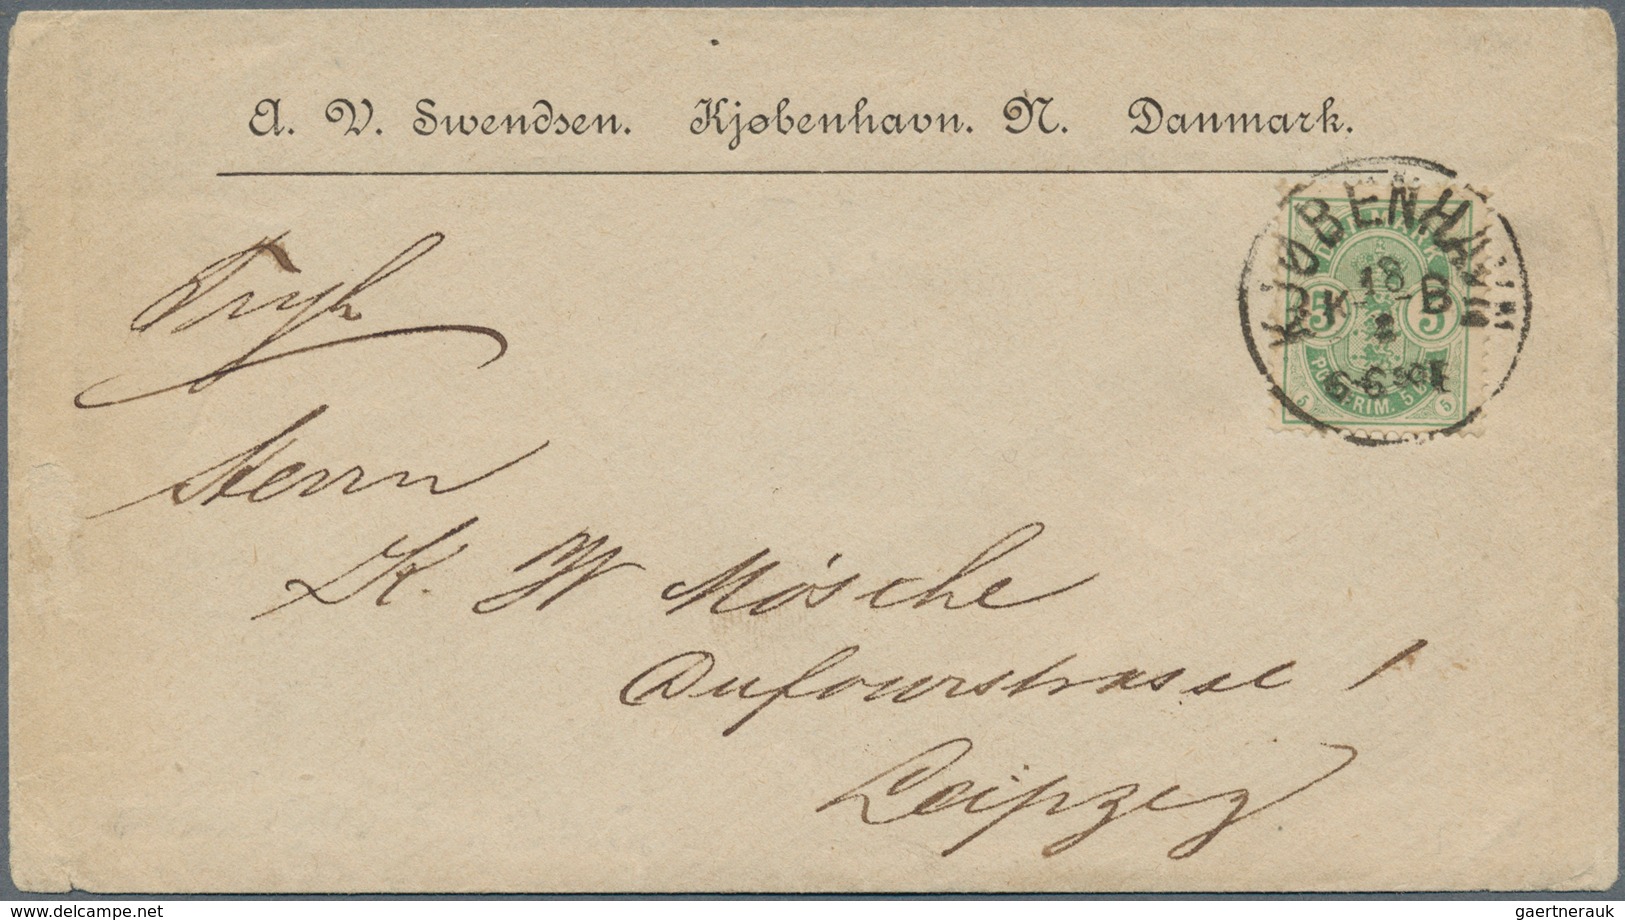 A. V. Swendsen. Kjøbenhavn. N. Danmark.
KJØBENHAVN
18
K B
2
5 5
POSTFRIM. 5 ØRE
5 5
Tryk
Herrn
K. W Mösche
Dufourstrasse 1
Leipzig
gaertnerauk www.delcampe.net